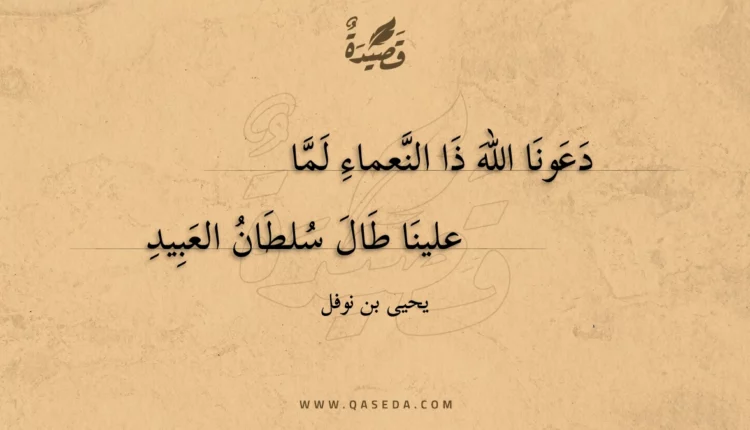 قَصِيْدَةٌ
دَعَونَا اللهَ ذَا النَّعماءِ لَمَّا
علينَا طَالَ سُلطَانُ العَبِيدِ
يحيى بن نوفل
WWW.QASEDA.COM